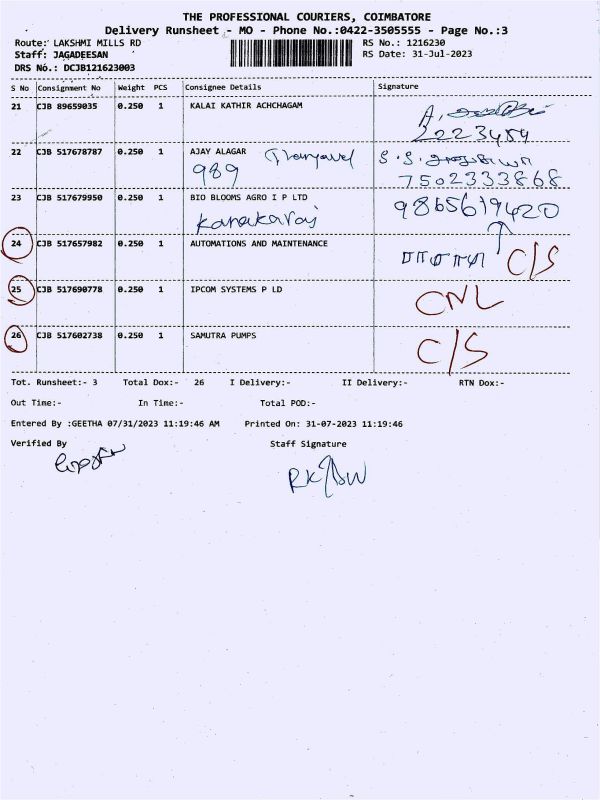 THE PROFESSIONAL COURIERS, COIMBATORE
Delivery Runsheet - MO - Phone No.:0422-3505555 - Page No.:3
Route: LAKSHMI MILLS RD RS No.: 1216230
Staff: JAGADEESAN RS Date: 31-Jul-2023
DRS No.: DCJB121623003
S No Consignment No Weight PCS Consignee Details Signature
21 CJB 89659035 0.250 1 KALAI KATHIR ACHCHAGAM
2223459
22 CJB 517678787 0.250 1 AJAY ALAGAR
989
7502333868
23 CJB 517679950 0.250 1 BIO BLOOMS AGRO I P LTD 9865619420
Kanakaraj
24 CJB 517657982 0.250 1 AUTOMATIONS AND MAINTENANCE C/S
25 CJB 517690778 0.250 1 IPCOM SYSTEMS P LD CNL
26 CJB 517602738 0.250 1 SAMUTRA PUMPS C/S
Tot. Runsheet:- 3 Total Dox:- 26 I Delivery:- II Delivery:- RTN Dox:-
Out Time:- In Time:- Total POD:-
Entered By :GEETHA 07/31/2023 11:19:46 AM Printed On: 31-07-2023 11:19:46
Verified By Staff Signature